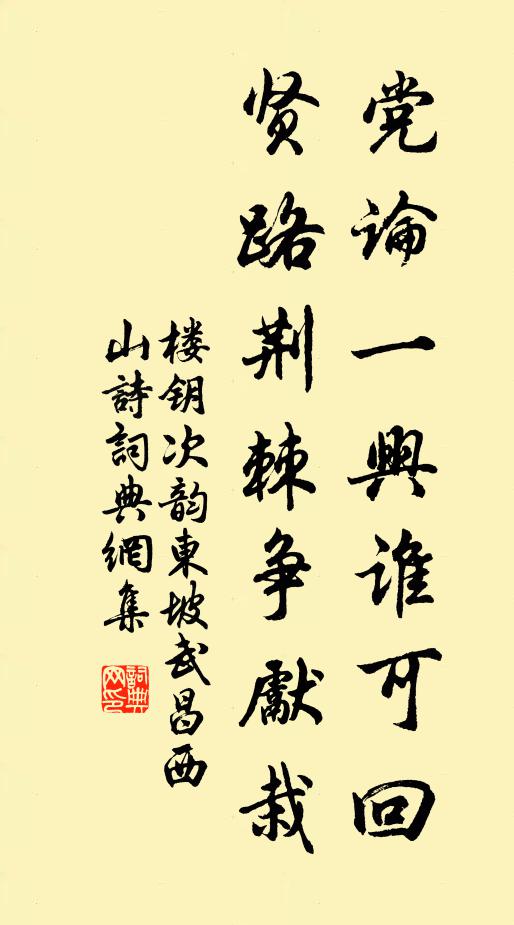 党論一興谁可回
贤路荆棘争獻栽
楼钥次韵東坡武昌西
山詩詞典網集
詞典
网印